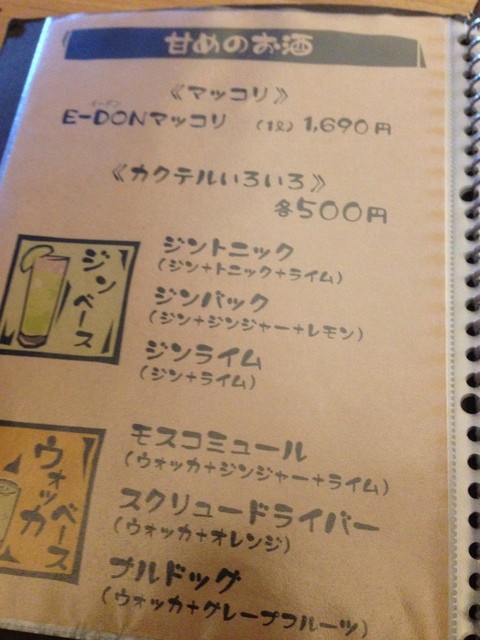 甘めのお酒
《マッコリ》
イードン
E-DONマッコリ (1ℓ) 1,690円
《カクテルいろいろ》
各500円
ジンベース
ジントニック
(ジン+トニック+ライム)
ジンバック
(ジン+ジンジャー+レモン)
ジンライム
(ジン+ライム)
ウォッカベース
モスコミュール
(ウォッカ+ジンジャー+ライム)
スクリュードライバー
(ウォッカ+オレンジ)
ブルドッグ
(ウォッカ+グレープフルーツ)